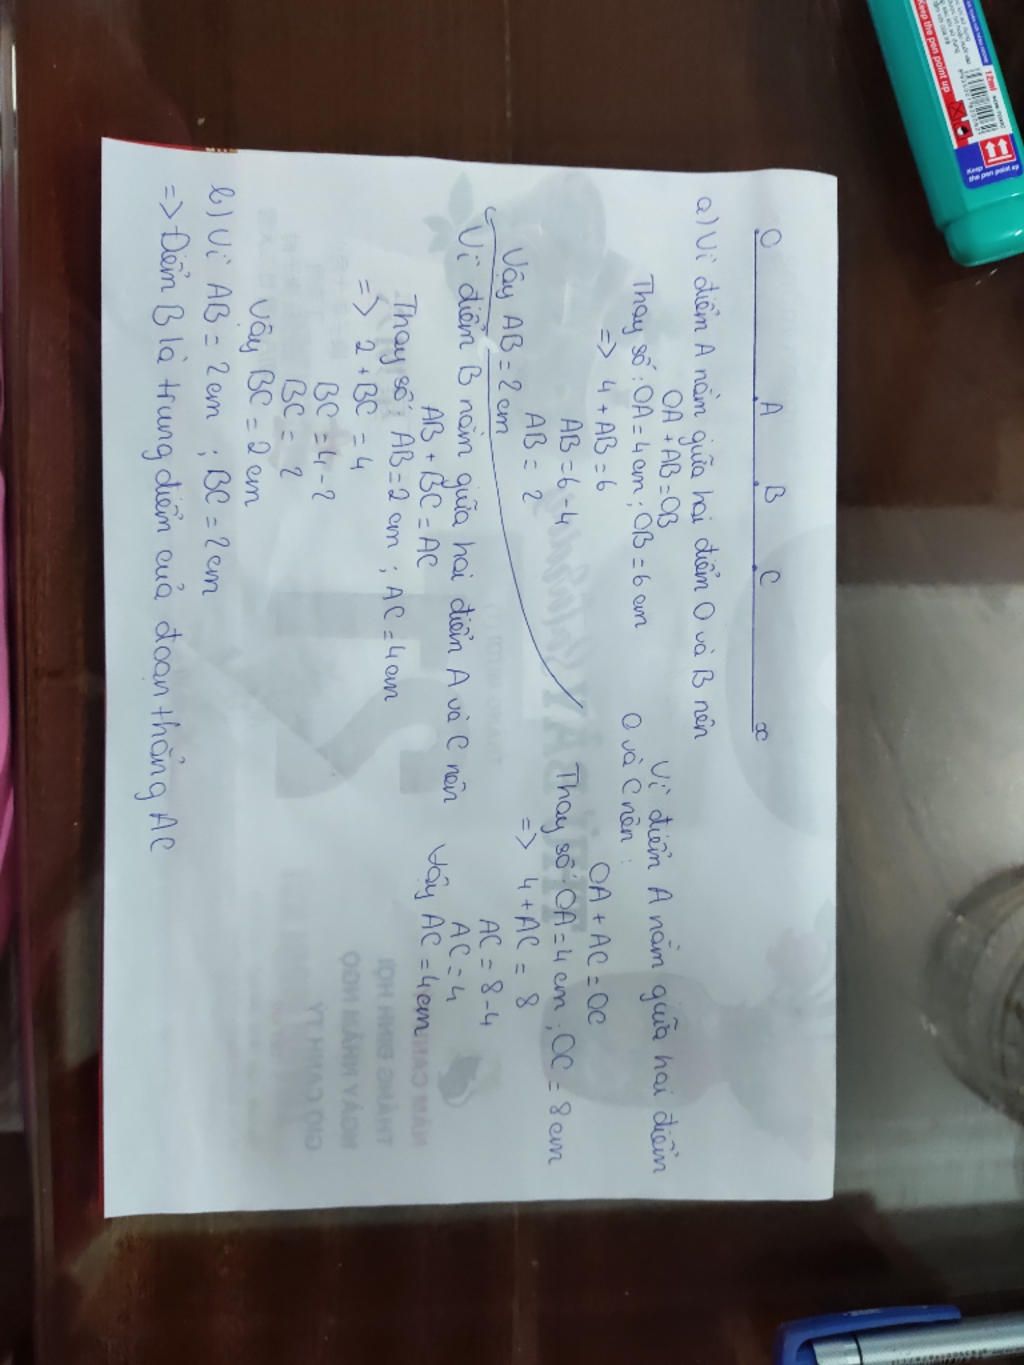 O A B C x
a) Vì điểm A nằm giữa hai điểm O và B nên
OA + AB = OB
Thay số : OA = 4 cm ; OB = 6 cm
=> 4 + AB = 6
AB = 6 - 4
AB = 2
Vậy AB = 2 cm
Vì điểm A nằm giữa hai điểm
O và C nên :
OA + AC = OC
Thay số : OA = 4 cm ; OC = 8 cm
=> 4 + AC = 8
AC = 8 - 4
AC = 4
Vậy AC = 4 cm
Vì điểm B nằm giữa hai điểm A và C nên
AB + BC = AC
Thay số : AB = 2 cm ; AC = 4 cm
=> 2 + BC = 4
BC = 4 - 2
BC = 2
Vậy BC = 2 cm
b) Vì AB = 2 cm ; BC = 2 cm
=> Điểm B là trung điểm của đoạn thẳng AC
Keep the pen point up
12ml
Keep
the pen point up
NĂM CANH
THÁNG ĐINH HỢI
NGÀY NHÂM NGỌ
GIỜ CANH TÝ